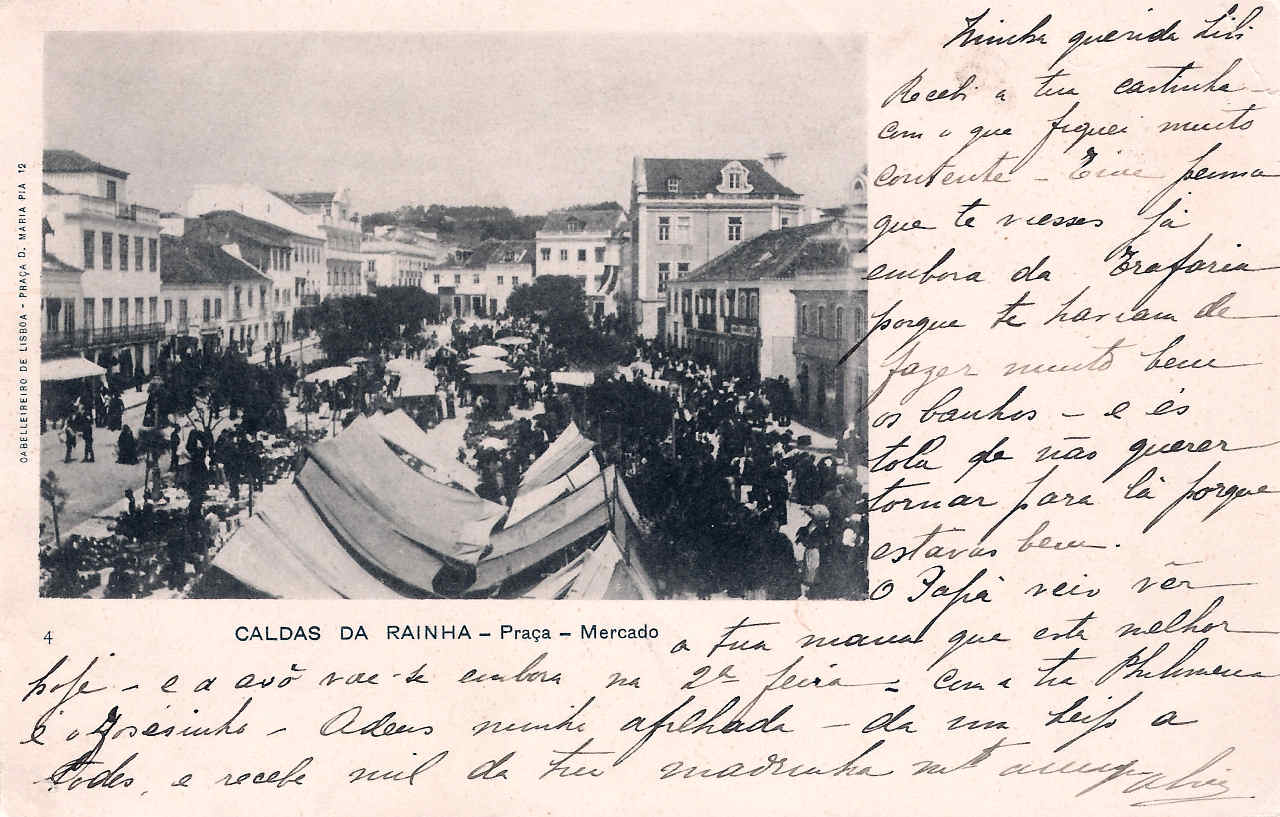 Minha querida Lili
Recebi a tua cartinha
com o que fiquei muito
contente - Tive penna
que te viesses já
embora da Trafaria
porque te haviam de
fazer muito bem
os banhos - e és
tola de não querer
tornar para lá porque
estavas bem.
O Papá veio vêr
CABELLEIREIRO DE LISBOA - PRAÇA D. MARIA PIA 12
4
CALDAS DA RAINHA - Praça - Mercado
a tua mana que está melhor
hoje - e a avó vae-se embora na 2ª feira - com a tia Philomena
e o Josésinho - Adeus minha afilhada - da um beijo a
todos, e recebe mil da tua madrinha mtº amiga